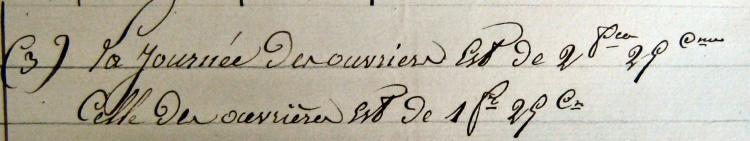 (3) la journée des ouvriers Est de 2 frcs 25 Cmes
Celle des ouvrières Est de 1 fr 25 Cs